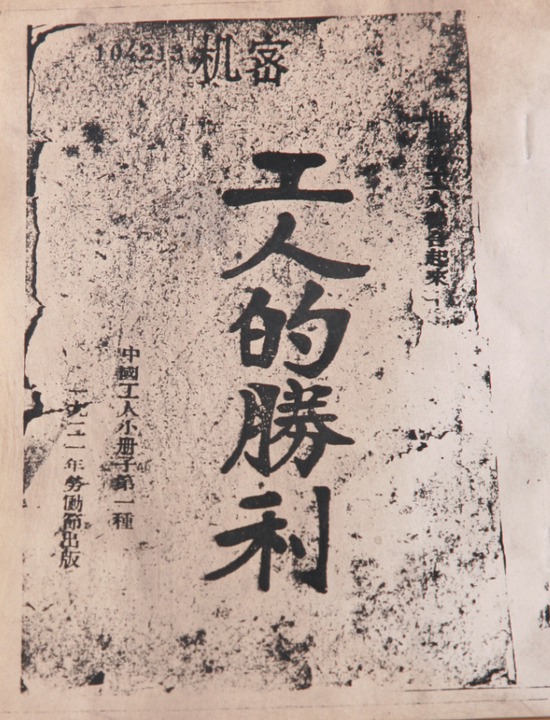 机密
工人的勝利
中國工人小册子第一種
一九二一年勞働節出版
工人
起來